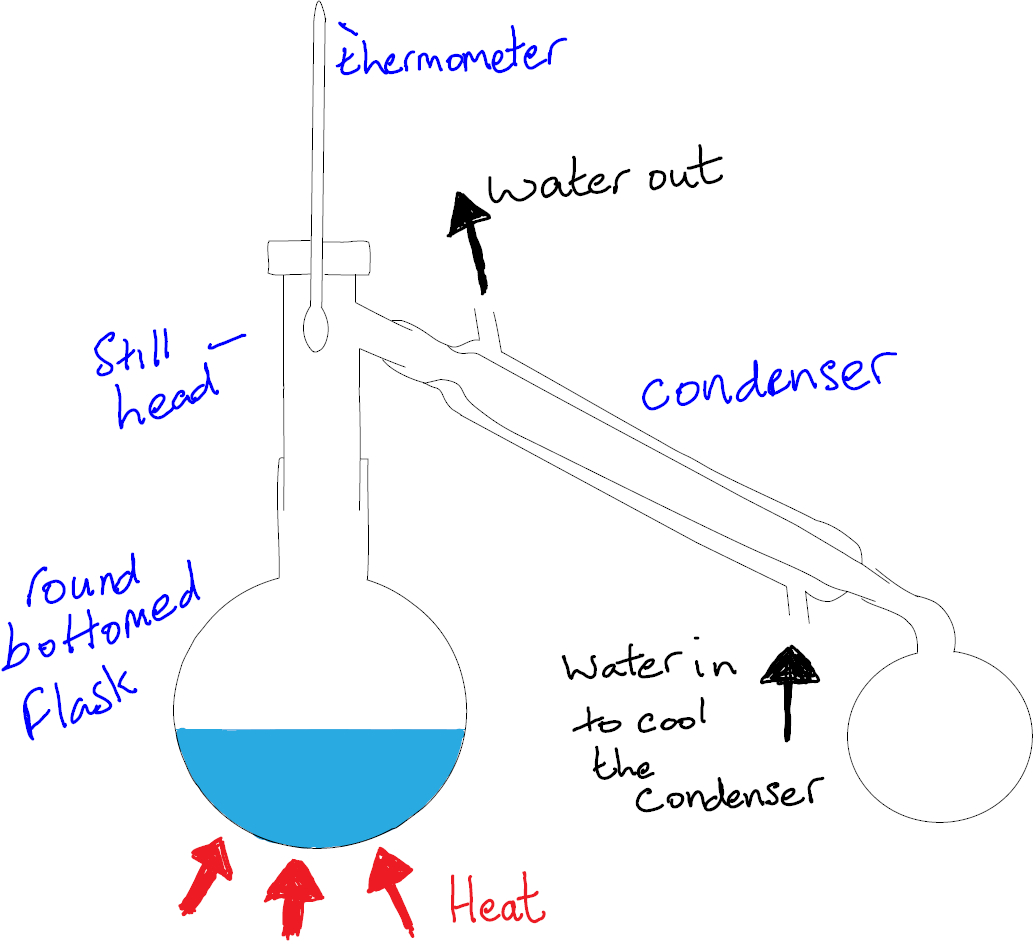 thermometer
Water out
Still
head
condenser
round
bottomed
Flask
Water in
to cool
the
condenser
Heat